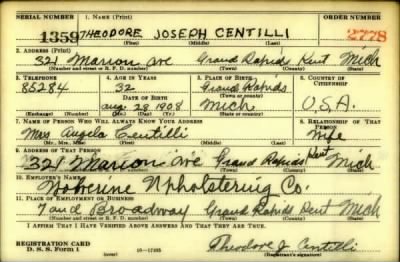 SERIAL NUMBER 1. NAME (Print) ORDER NUMBER
1359 THEODORE JOSEPH CENTILLI 2778
(First) (Middle) (Last)
2. ADDRESS (Print)
321 Marion Ave Grand Rapids Kent Mich
(Number and street or R. F. D. number) (Town) (County) (State)
3. TELEPHONE 4. AGE IN YEARS 5. PLACE OF BIRTH 6. COUNTRY OF CITIZENSHIP
85284 32 Grand Rapids
DATE OF BIRTH (Town or county)
Aug 29 1908 Mich U.S.A.
(Exchange) (Number) (Mo.) (Day) (Yr.) (State or country)
7. NAME OF PERSON WHO WILL ALWAYS KNOW YOUR ADDRESS 8. RELATIONSHIP OF THAT PERSON
Mrs Angela Centilli Wife
(Mr., Mrs., Miss) (First) (Middle) (Last)
9. ADDRESS OF THAT PERSON
321 Marion Ave Grand Rapids Kent Mich
(Number and street or R. F. D. number) (Town) (County) (State)
10. EMPLOYER'S NAME
Wolverine Upholstering Co.
11. PLACE OF EMPLOYMENT OR BUSINESS
7 and Broadway Grand Rapids Kent Mich
(Number and street or R. F. D. number) (Town) (County) (State)
I AFFIRM THAT I HAVE VERIFIED ABOVE ANSWERS AND THAT THEY ARE TRUE.
REGISTRATION CARD Theodore J Centilli
D. S. S. Form 1 (over) 16—17105 (Registrant's signature)